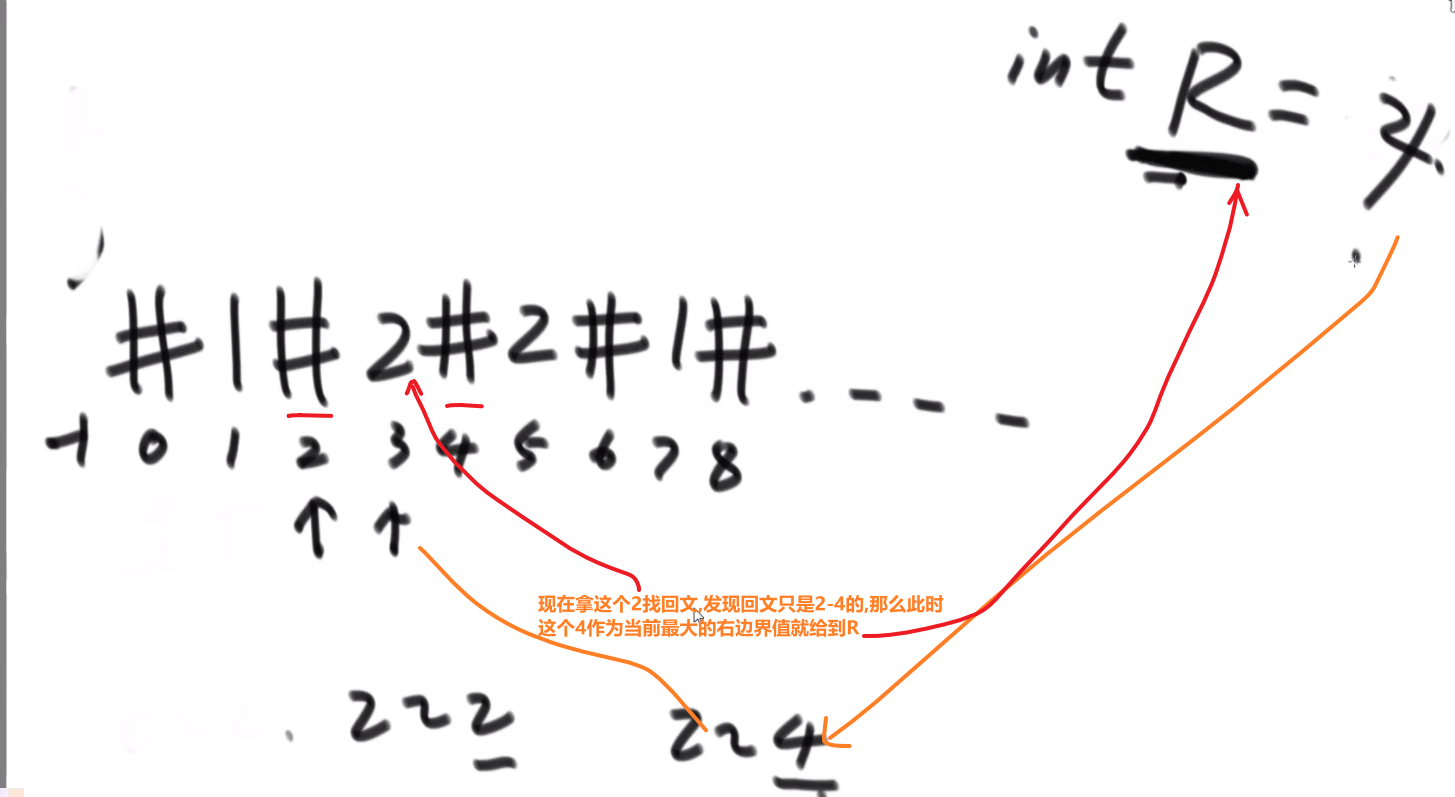 int R = 4.
# 1 # 2 # 2 # 1 # . - - -
-1 0 1 2 3 4 5 6 7 8
↑ ↑
现在拿这个2找回文,发现回文只是2-4的,那么此时
这个4作为当前最大的右边界值就给到R
2~2 2~4